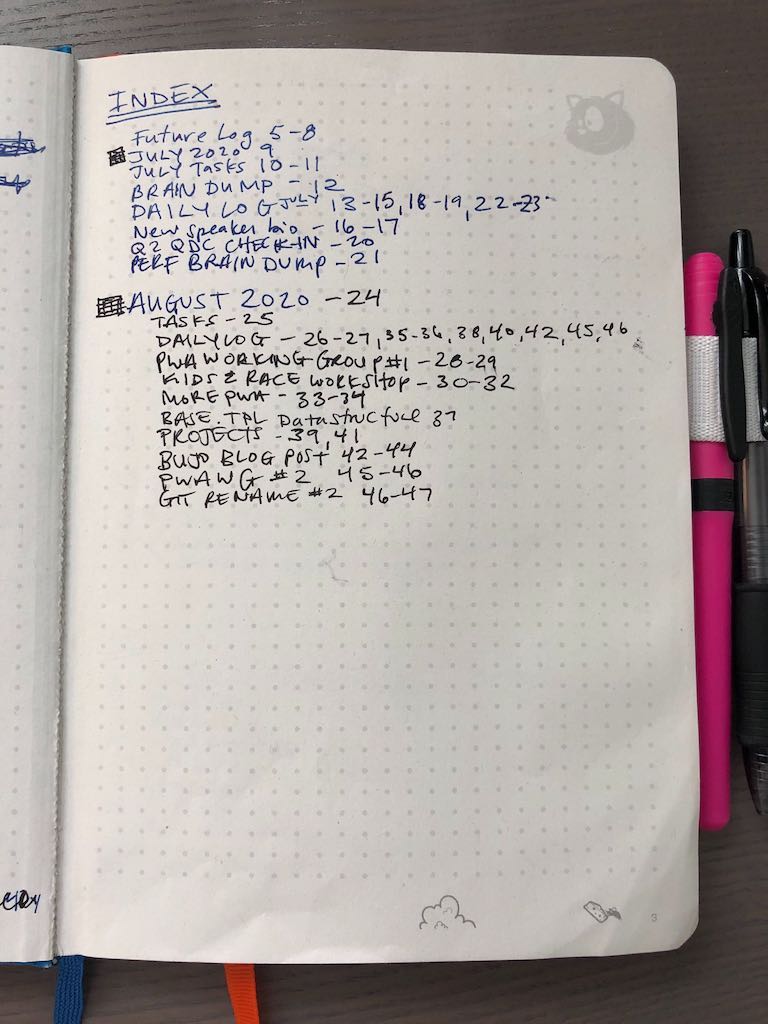 INDEX
Future Log 5-8
JULY 2020 9
JULY TASKS 10-11
BRAIN DUMP - 12
DAILY LOG JULY 13-15, 18-19, 22-23
New speaker bio - 16-17
Q2 QDC CHECK-IN - 20
PERF BRAIN DUMP - 21
AUGUST 2020 - 24
TASKS - 25
DAILY LOG - 26-27, 35-36, 38, 40, 42, 45, 46
PWA WORKING GROUP #1 - 28-29
KIDS & RACE WORKSHOP - 30-32
MORE PWA - 33-34
BASE.TPL Datastructure 37
PROJECTS - 39, 41
BUJO BLOG POST 42-44
PWA WG #2 45-46
GIT RENAME #2 46-47
3